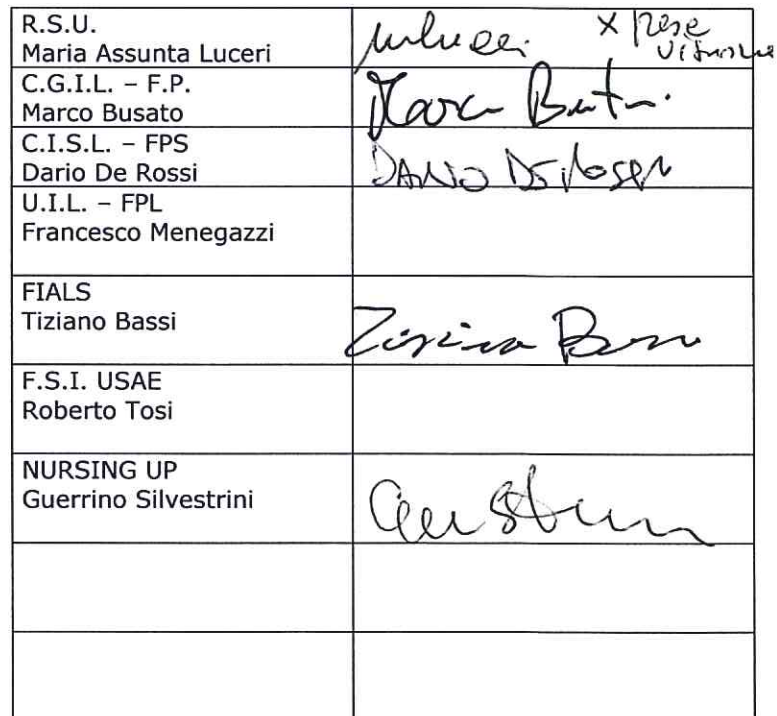 R.S.U.
Maria Assunta Luceri
x Presa
visione
C.G.I.L. – F.P.
Marco Busato
Marco
C.I.S.L. – FPS
Dario De Rossi
DARIO DE ROSSI
U.I.L. – FPL
Francesco Menegazzi
FIALS
Tiziano Bassi
F.S.I. USAE
Roberto Tosi
NURSING UP
Guerrino Silvestrini